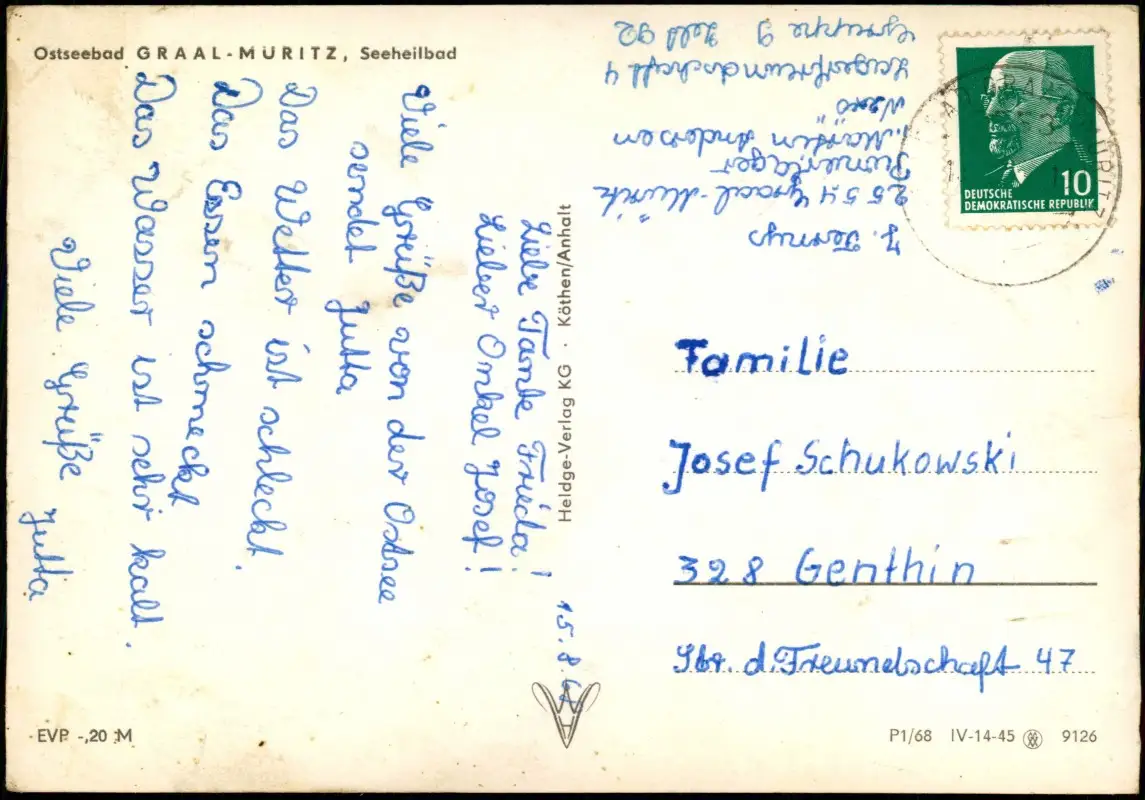 Ostseebad GRAAL-MÜRITZ, Seeheilbad
15.8.68
Liebe Tante Frieda!
Lieber Onkel Josef!
Viele Grüße von der Ostsee
sendet Jutta
Das Wetter ist schlecht.
Das Essen schmeckt
Das Wasser ist sehr kalt.
Viele Grüße
Jutta
Heldge-Verlag KG · Köthen/Anhalt
J.
2554 Graal-Müritz
"Martin Andersen
Nexö
Lagerfreundschaft 4
Gruppe 9 Zelt 92
10
DEUTSCHE
DEMOKRATISCHE REPUBLIK
Familie
Josef Schukowski
328 Genthin
Str. d. Freundschaft 47
EVP -,20 M
P1/68 IV-14-45 9126